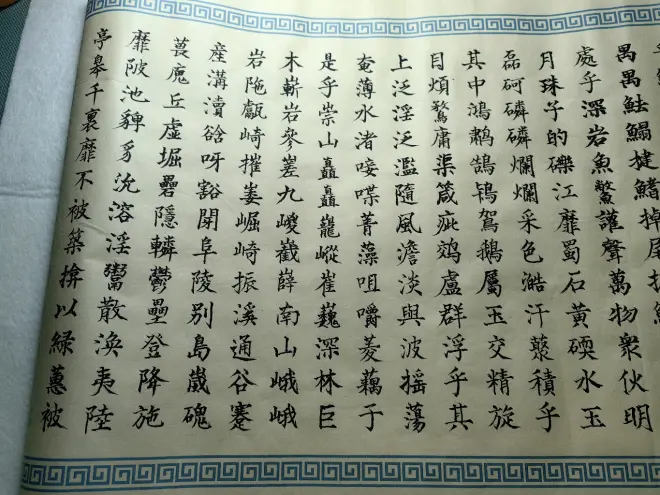 禺禺魼鰨揵鰭掉尾
處乎深岩魚鱉讙聲萬物衆伙明
月珠子的礫江靡蜀石黃碝水玉
磊砢磷磷爛爛采色澔汗藂積乎
其中鴻鷫鵠鴇鴐鵝屬玉交精旋
目煩鶩庸渠箴疵鵁盧群浮乎其
上泛淫泛濫隨風澹淡與波搖蕩
奄薄水渚唼喋菁藻咀嚼菱藕于
是乎崇山矗矗巃嵷崔巍深林巨
木嶄岩參嵳九嵕巀嶭南山峨峨
岩陁甗崎摧崣崛崎振溪通谷蹇
産溝瀆谽呀豁閉阜陵別島崴磈
葨廆丘虛堀礨隱轔鬱壘登降施
靡陂池貏豸沇溶淫鬻散渙夷陸
亭皋千裏靡不被築揜以緑蕙被